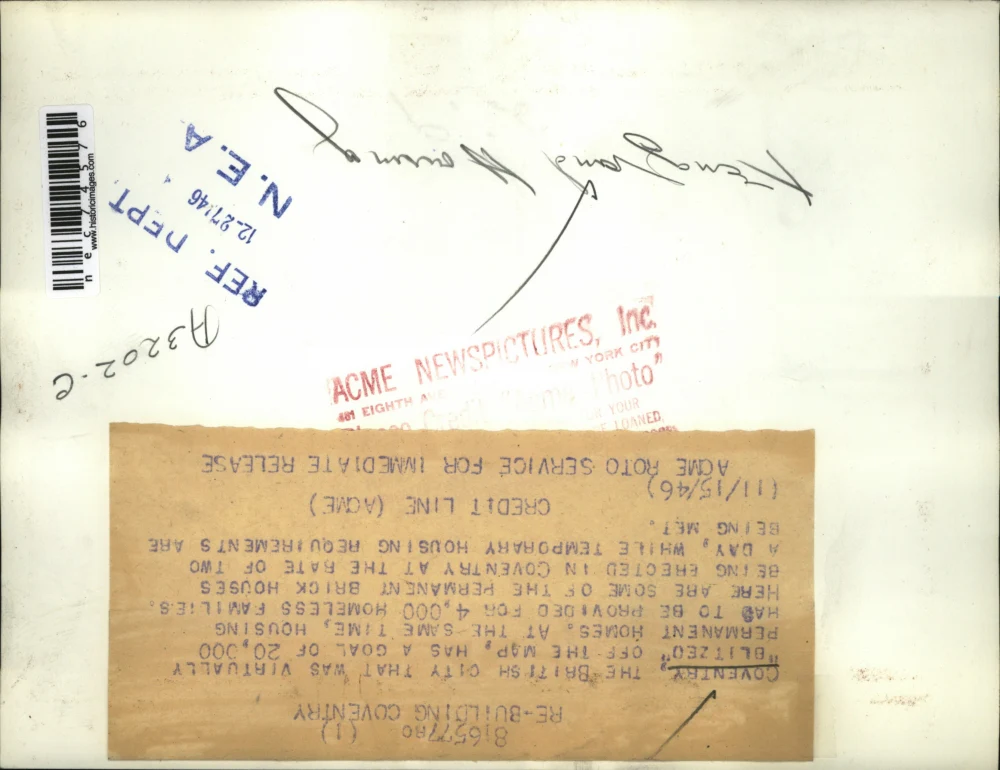 N.E.A
12.27.46
REF. DEPT.
www.historicimages.com
nec74576
A3202-C
ACME NEWSPICTURES, Inc.
461 EIGHTH AVE NEW YORK CITY
Credit "Acme Photo"
YOUR
LOANED
(1)
RE-BUILDING COVENTRY
COVENTRY, THE BRITISH CITY THAT WAS VIRTUALLY
"BLITZED" OFF THE MAP, HAS A GOAL OF 20,000
PERMANENT HOMES. AT THE SAME TIME, HOUSING
HAD TO BE PROVIDED FOR 4,000 HOMELESS FAMILIES.
HERE ARE SOME OF THE PERMANENT BRICK HOUSES
BEING ERECTED IN COVENTRY AT THE RATE OF TWO
A DAY, WHILE TEMPORARY HOUSING REQUIREMENTS ARE
BEING MET.
CREDIT LINE (ACME)
(11/15/46)
ACME ROTO SERVICE FOR IMMEDIATE RELEASE